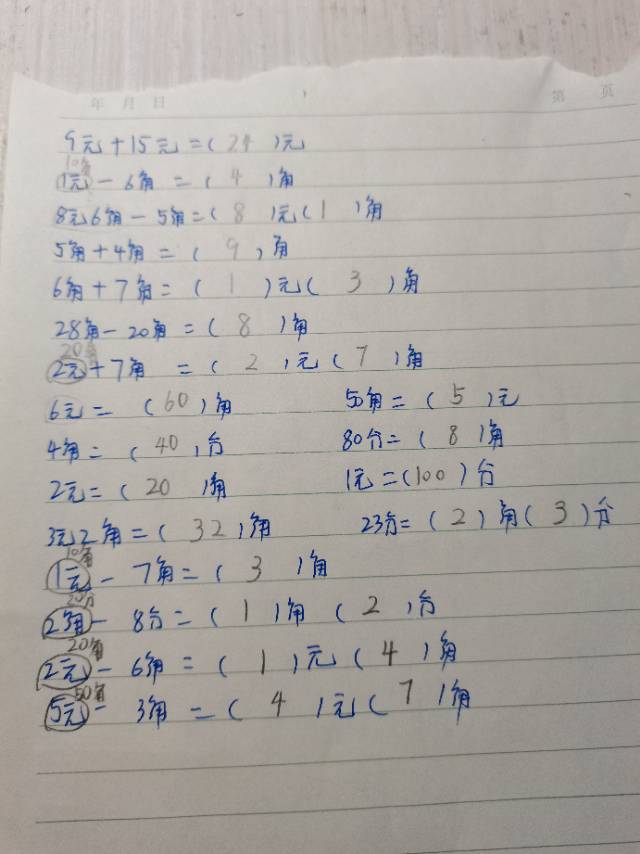 年 月 日 第 页
9元+15元=(24)元
10角
1元-6角=(4)角
8元6角-5角=(8)元(1)角
5角+4角=(9)角
6角+7角=(1)元(3)角
28角-20角=(8)角
20角
2元+7角=(2)元(7)角
6元=(60)角 50角=(5)元
4角=(40)分 80分=(8)角
2元=(20)角 1元=(100)分
3元2角=(32)角 23分=(2)角(3)分
10角
1元-7角=(3)角
20分
2角-8分=(1)角(2)分
20角
2元-6角=(1)元(4)角
50角
5元-3角=(4)元(7)角